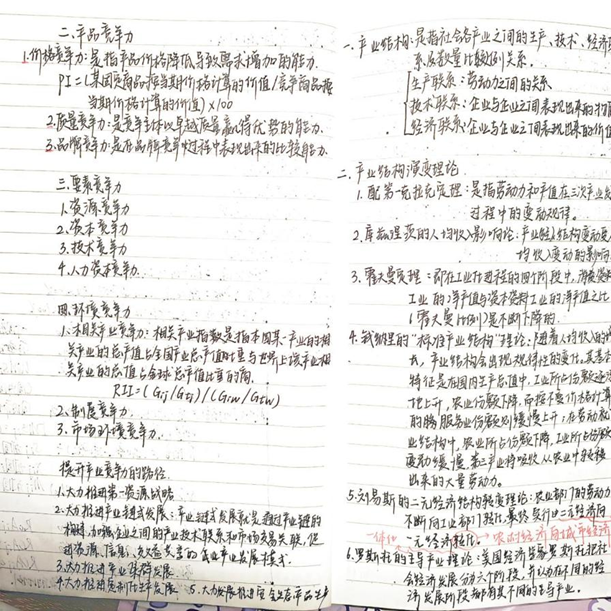 二.产品竞争力
1.价格竞争力:是指产品价格降低导致需求增加的能力.
PI=(某国商品按当期价格计算的价值/竞争商品按
当期价格计算的价值)×100
2.质量竞争力:是竞争主体以卓越质量赢得优势的能力.
3.品牌竞争力:是在品牌竞争过程中表现出来的比较能力.
三.要素竞争力
1.资源竞争力
2.资本竞争力
3.技术竞争力
4.人力资本竞争力.
四.环境竞争力
1.相关产业竞争力:相关产业指数是指本国某一产业的相
关产业的总产值占全国产业总产值比重与世界上该产业相
关产业的总值占全球总产值比重的商.
RII=(Gij/Gti)/(Giw/Gtw)
2.制度竞争力.
3.市场环境竞争力.
提升产业竞争力的路径
1.大力推进第一资源战略
2.大力推进产业链式发展:产业链式发展就是通过产业链的
加强企业之间的产业技术联系和市场交易关联,促
进资源、信息、的企业产业发展模式.
3.大力推进产业集群发展
4.大力推进定制化生产发展. 5.大力发展推进
一.产业结构:是指社会各产业之间的生产、技术、经济
系及数量比例关系.
生产联系:劳动力之间的关系
技术联系:企业与企业之间表现出来的
经济联系:企业与企业之间表现出来的价值
二.产业结构演变理论
1.配第一克拉克定理:是指劳动力和产值在三次产业
过程中的变动规律.
2.库兹涅茨的人均收入影响论:产业结构变动
均收入变动的影响
3.霍夫曼定理:即在工业化进程的四个阶段中,消费资料
工业的净产值与资本资料工业的净产值之比
(霍夫曼比例)是不断下降的.
4.钱纳里的"标准产业结构"理论:随着人均收入的
产业结构会出现规律性的变化.其基本
特征是在国内生产总值中,工业所占份额逐渐
上升,农业份额下降,而按不变价格计算
的服务业份额则缓慢上升;在劳动
业结构中,农业所占份额下降,工业所占份额
变动缓慢,第三产业将吸收从农业中转移
出来的大量劳动力.
5.刘易斯的二元经济结构转变理论:农业部门的劳动力
不断向工业部门转化,最终
一元经济转化. 农村经济向城市经济
6.罗斯托的主导产业理论:美国经济学家罗斯托把社
会经济发展分六个阶段,并认为在不同的经
济发展阶段都有其不同的主导产业.